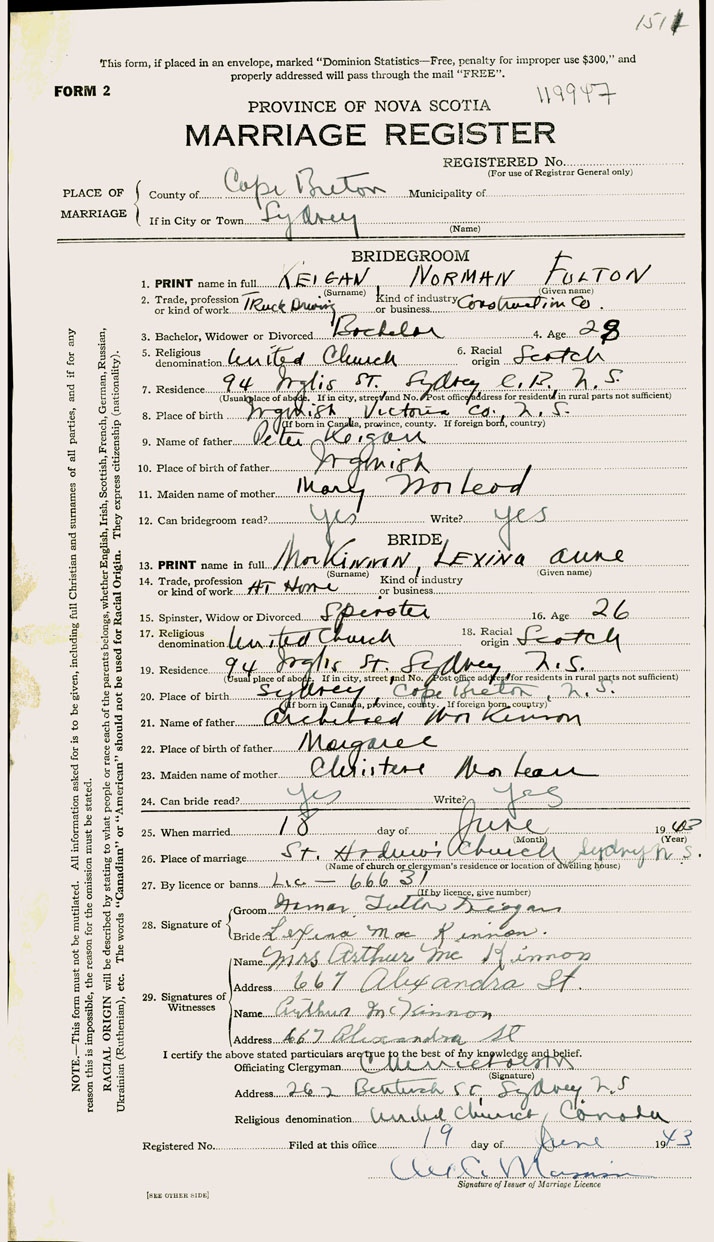 151
This form, if placed in an envelope, marked "Dominion Statistics—Free, penalty for improper use $300," and
properly addressed will pass through the mail "FREE".
FORM 2
119947
PROVINCE OF NOVA SCOTIA
MARRIAGE REGISTER
REGISTERED No.
(For use of Registrar General only)
PLACE OF MARRIAGE
County of Cape Breton Municipality of
If in City or Town Sydney
(Name)
BRIDEGROOM
1. PRINT name in full KEIGAN NORMAN FULTON
(Surname) (Given name)
2. Trade, profession or kind of work Truck Driving Kind of industry or business Construction Co.
3. Bachelor, Widower or Divorced Bachelor 4. Age 28
5. Religious denomination United Church 6. Racial origin Scotch
7. Residence 94 Inglis St. Sydney C.B. N.S.
(Usual place of abode. If in city, street and No. Post office address for residents in rural parts not sufficient)
8. Place of birth Ingonish, Victoria Co., N.S.
(If born in Canada, province, county. If foreign born, country)
9. Name of father Peter Keigan
10. Place of birth of father Ingonish
11. Maiden name of mother Mary MacLeod
12. Can bridegroom read? yes Write? yes
BRIDE
13. PRINT name in full MacKINNON, LEXINA Anne
(Surname) (Given name)
14. Trade, profession or kind of work At Home Kind of industry or business
15. Spinster, Widow or Divorced Spinster 16. Age 26
17. Religious denomination United Church 18. Racial origin Scotch
19. Residence 94 Inglis St Sydney, N.S.
(Usual place of abode. If in city, street and No. Post office address for residents in rural parts not sufficient)
20. Place of birth Sydney, Cape Breton, N.S.
(If born in Canada, province, county. If foreign born, country)
21. Name of father Archibald MacKinnon
22. Place of birth of father Margaree
23. Maiden name of mother Christene MacLean
24. Can bride read? yes Write? yes
25. When married 18 day of June 1943
(Month) (Year)
26. Place of marriage St. Andrew's Church Sydney N.S.
(Name of church or clergyman's residence or location of dwelling house)
27. By licence or banns Lic — 66631
(If by licence, give number)
28. Signature of
Groom Norman Fulton Keegan
Bride Lexina Mac Kinnon.
29. Signatures of Witnesses
Name Mrs Arthur Mc Kinnon
Address 667 Alexandra St.
Name Arthur McKinnon
Address 667 Alexandra St
I certify the above stated particulars are true to the best of my knowledge and belief.
Officiating Clergyman
(Signature)
Address 262 St. Sydney N.S
Religious denomination United Church, Canada
Registered No. Filed at this office 19 day of June 1943
Signature of Issuer of Marriage Licence
[SEE OTHER SIDE]
NOTE.—This form must not be mutilated. All information asked for is to be given, including full Christian and surnames of all parties, and if for any
reason this is impossible, the reason for the omission must be stated.
RACIAL ORIGIN will be described by stating to what people or race each of the parents belongs, whether English, Irish, Scottish, French, German, Russian,
Ukrainian (Ruthenian), etc. The words "Canadian" or "American" should not be used for Racial Origin. They express citizenship (nationality).